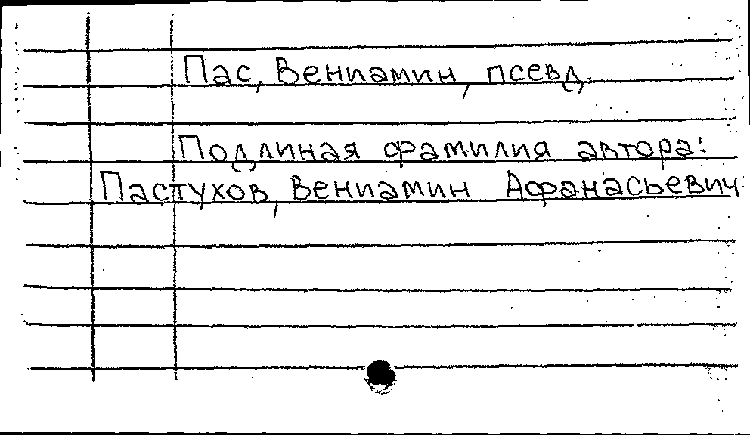 Пас, Вениамин, псевд.
Подлиная фамилия автора:
Пастухов, Вениамин Афанасьевич